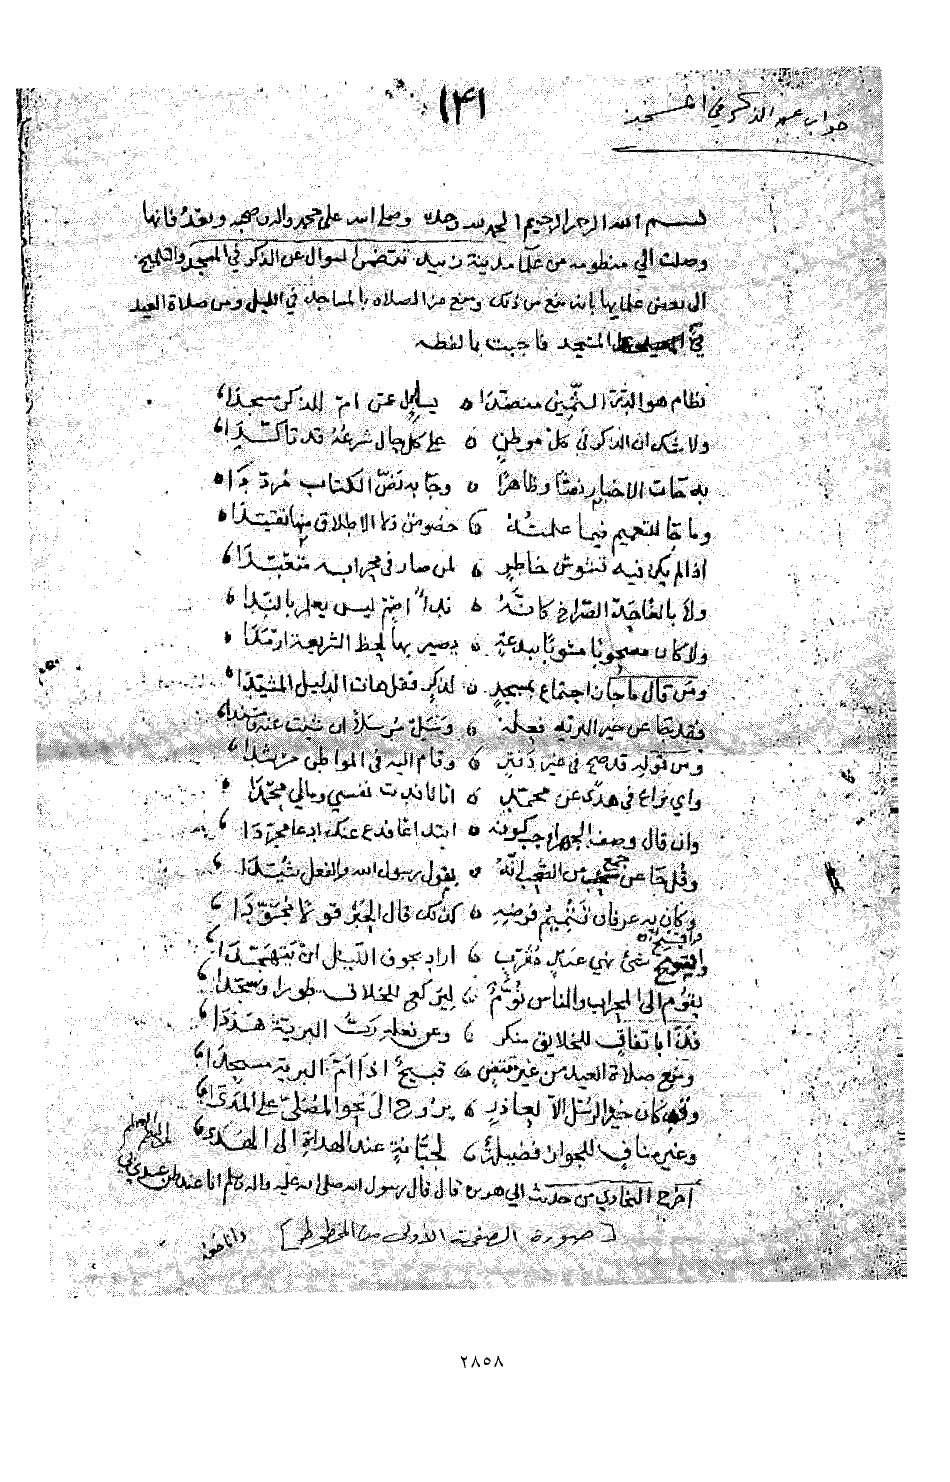 ١٤١
جواب عن الذكر في المسجد
بسم الله الرحمن الرحيم الحمد لله وحده وصلى الله على محمد وآل محمد وبعد فانها
وصلت الي منظومه من علما مدينة زبيد تتضمن السوال عن الذكر في المسجد والتلميح
الى بعض علمايها بانه منع من ذلك ومنع من الصلاه بالمساجد في الليل ومن صلاة العيد
في المسجد فاجبت بما لفظه
نظام هو الدر الثمين منضدا ه يسايل عن ام للذكر مسجدا
ولا شك ان الذكر في كل موطن ه على كل حال شرعه قد تأكدا
به جات الاخبار نصا وظاهرا ه وجا به نص الكتاب مرددا
وما جا للتعميم فيما علمته ه خصوص ولا الاطلاق منها تقيدا
اذا لم يكن فيه تشوش خاطر ه لمن صار في محرابه متعبدا
ولا بالغا حد الصراخ كانه ه ندا اصم ليس يعلم بالندا
ولا كان مصحوبا مشوبا ببدعة ه يصير بها لحظ الشريعة ارمدا
ومن قال ما جا ان اجتماع بمسجد ه لذكر فقل هات الدليل المشيدا
فقد جا عن خير البريه فعله ه وسل مرسلا ان شئت عنه ومسندا
ومن قوله قد صح في غير دفتر ه وقام اليه في المواطن مرشدا
واي نزاع في هدى عن محمد ه انا فاديت نفسي ومالي محمدا
وان قال وصف الجهر اوجب كونه ه ابتداعا فدع عنك ادعا مجردا
وقل جا عن جمع من الصحب انه ه بقول رسول الله والفعل شيدا
وكان به عرفان تتميم فرضه ه كذلك قال الحبر قولا مجودا
واقبح شئ نهي عبد مقرب ه اراد بجوف الليل ان يتهجدا
يقوم الى المحراب والناس نوم ه ليركع للخلاق طورا ويسجدا
فهذا باتفاق للخلايق منكر ه وعن فعله رب البرية هددا
ومنع صلاة العيد من غير مقتض ه قبيح اذا ام البرية مسجدا
وقد كان خير الرسل الا لعاذر ه يروح الى نحو المصلى على المدى
وغير مناف للجواز فضيلة ه لجبانة عند الهداة الى الهدى
اخرج البخاري من حديث ابي هريره قال قال رسول الله صلى الله عليه واله وسلم انا عند ظن عبدي بي
وانا معه
[صورة الصفحة الأولى من المخطوط]
٢٨٥٨